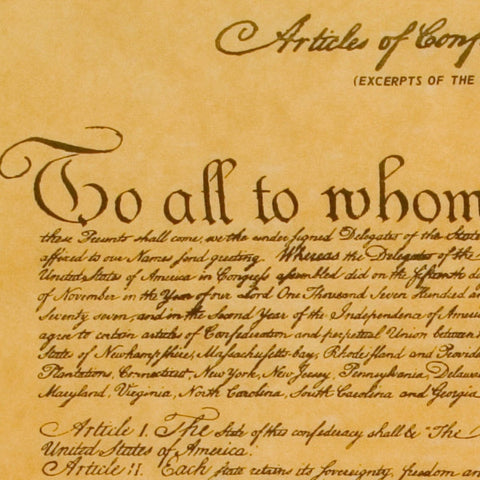 Articles of Conf
(EXCERPTS OF THE
To all to whom
these Presents shall come, we the under signed Delegates of the State
affixed to our Names send greeting. Whereas the Delegates of the
United States of America in Congress assembled did on the fifteenth d
of November in the Year of our Lord One Thousand Seven Hundred an
Seventy seven, and in the Second Year of the Independence of Americ
agree to certain articles of Confederation and perpetual Union between
States of Newhampshire, Massachusetts-bay, Rhodeisland and Provide
Plantations, Connecticut, New York, New Jersey, Pennsylvania, Delawar
Maryland, Virginia, North Carolina, South Carolina and Georgia
Article I. The State of this confederacy shall be "The
United States of America.
Article II. Each state retains its Sovereignty, freedom an